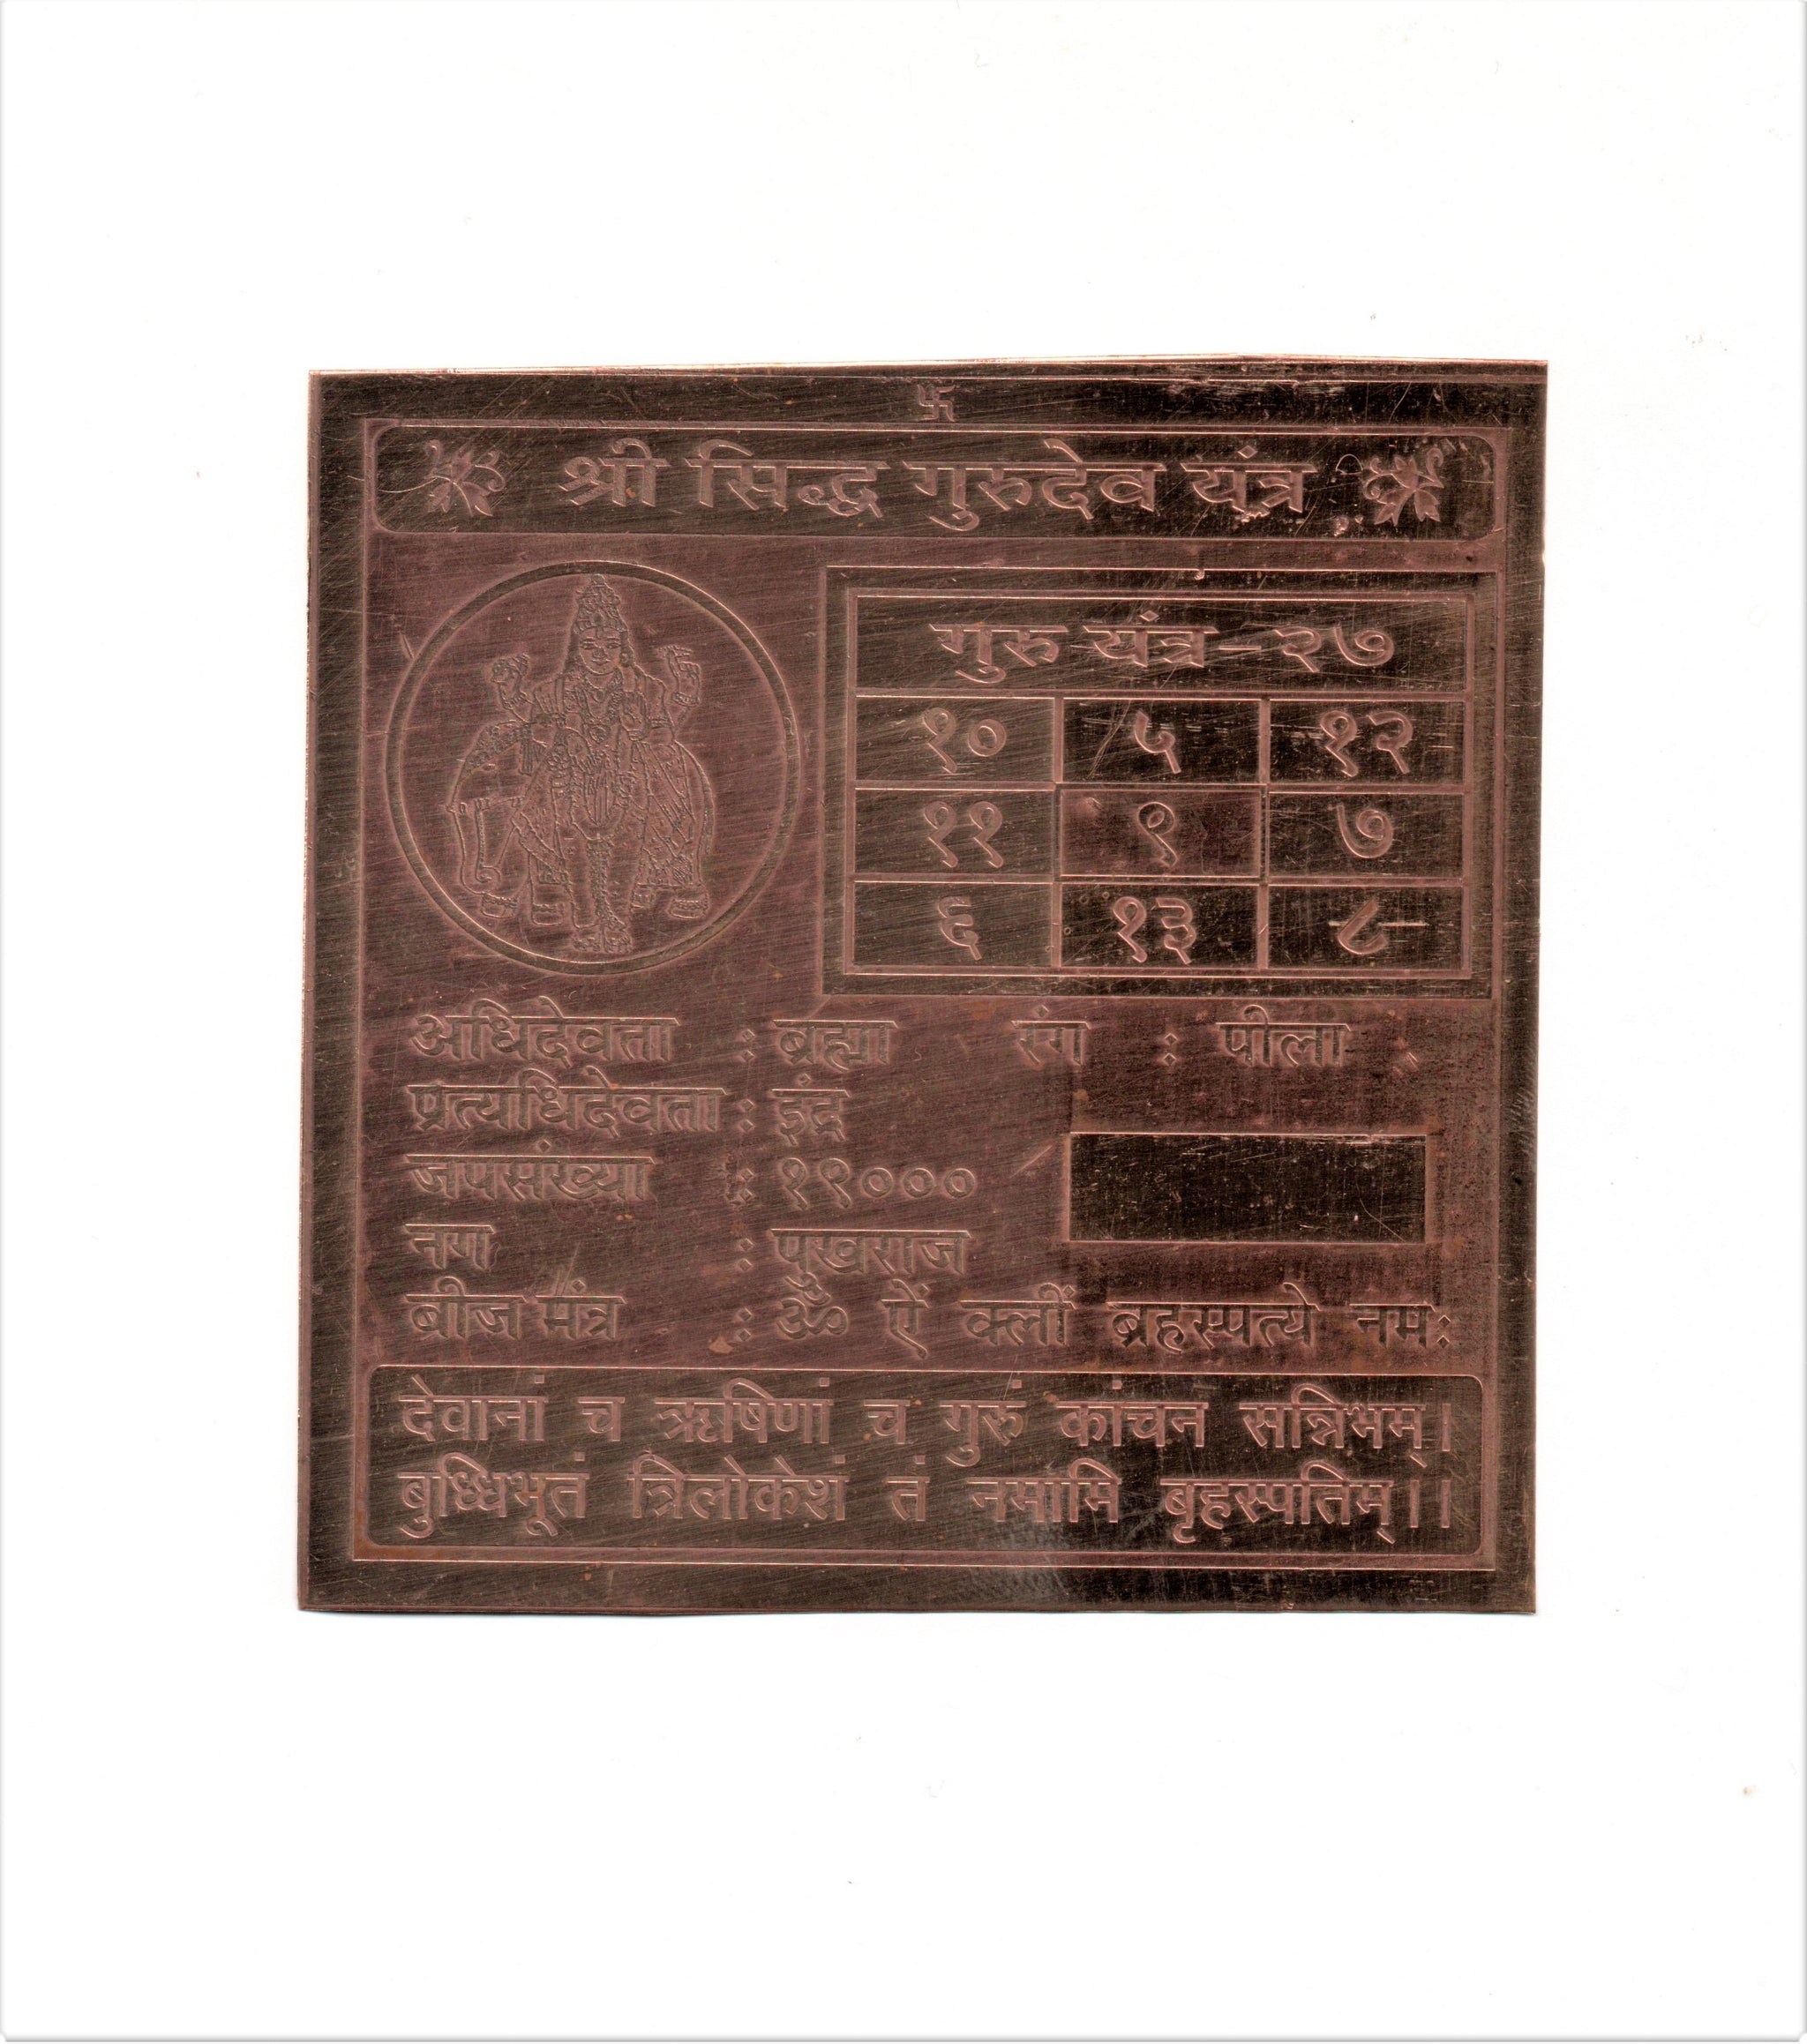 卐
श्री सिद्ध गुरुदेव यंत्र
गुरु यंत्र-२७
१० ५ १२
११ ९ ७
६ १३ ८
अधिदेवता : ब्रह्मा रंग : पीला
प्रत्यधिदेवता : इंद्र
जपसंख्या : १९०००
नग : पुखराज
बीज मंत्र : ॐ ऐं क्लीं ब्रहस्पत्ये नमः
देवानां च ऋषिणां च गुरुं कांचन सन्निभम्।
बुध्धिभूतं त्रिलोकेशं तं नमामि बृहस्पतिम्।।